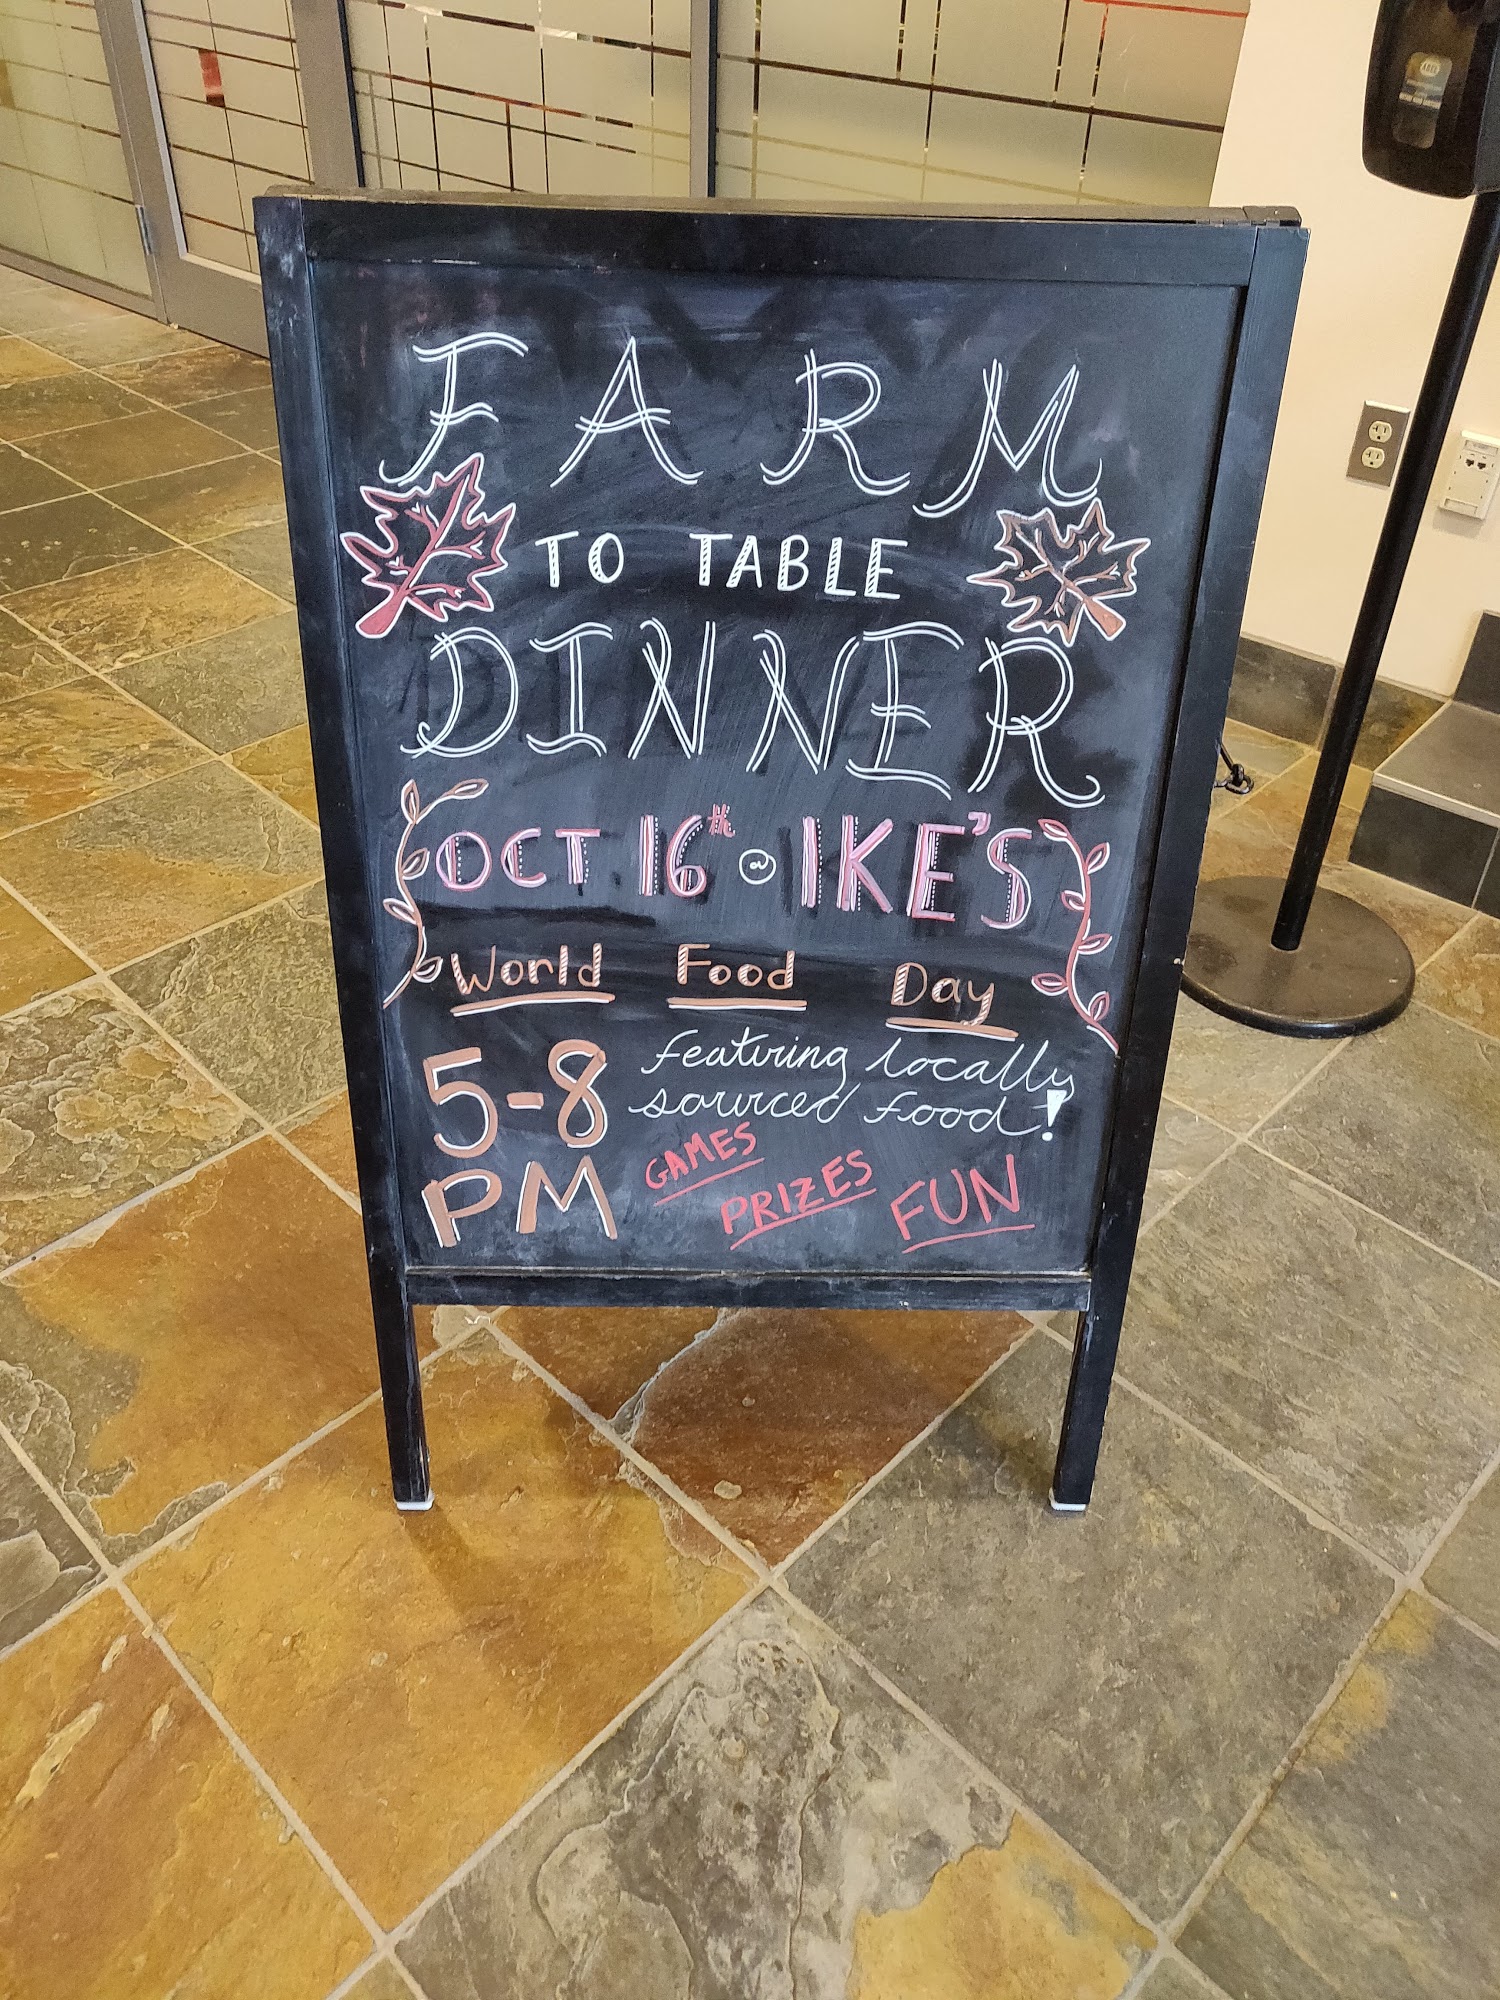 FARM
TO TABLE
DINNER
OCT 16th @ IKE'S
World Food Day
5-8
PM
featuring locally
sourced food!
GAMES
PRIZES
FUN